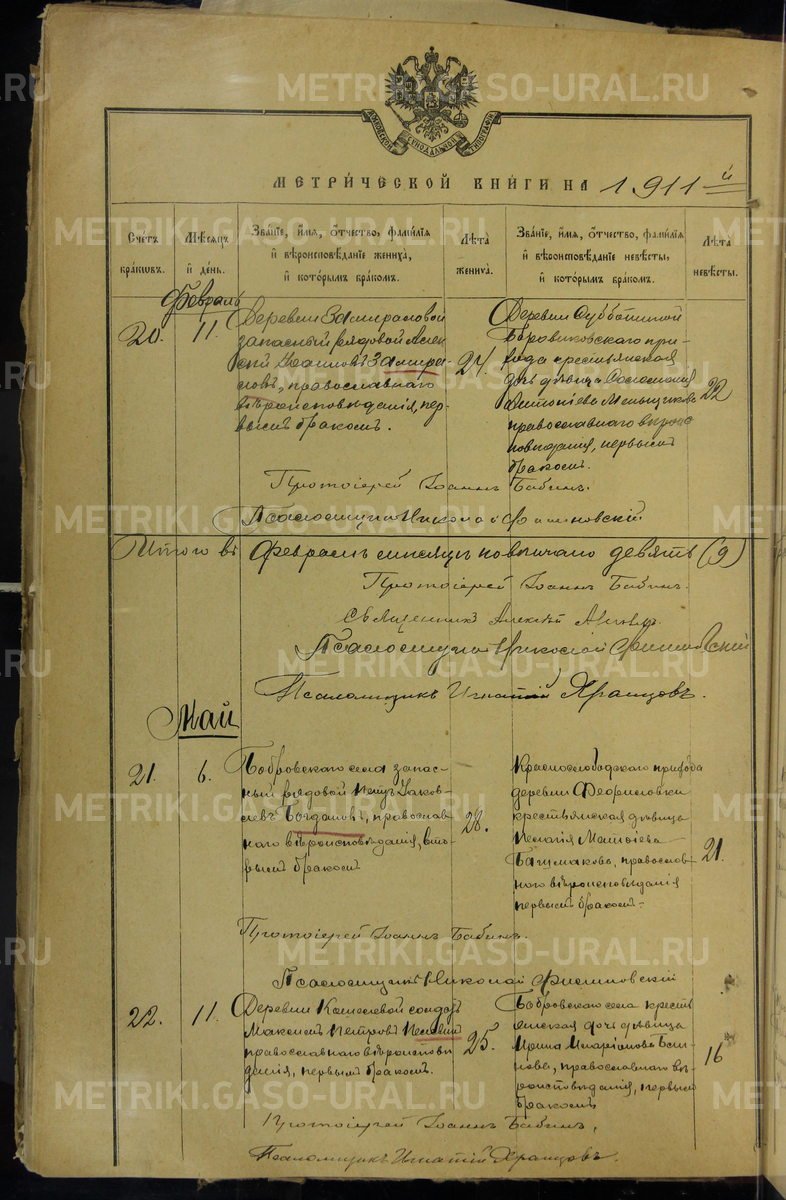 METRIKI.GASO-URAL.RU
МОСКОВСКОЙ СѴНОДАЛЬНОЙ ТИПОГРАФІИ
МЕТРИ́ЧЕСКОЙ КНИ́ГИ НА 1911й
Счетъ
браковъ.
Мѣсяцъ
и день.
Званіе, имя, отчество, фамилія
и вѣроисповѣданіе жениха,
и которымъ бракомъ.
Лѣта
жениха.
Званіе, имя, отчество, фамилія
и вѣроисповѣданіе невѣсты,
и которымъ бракомъ.
Лѣта
невѣсты.
Февраль
20.
11.
Деревни Замираловой
запасный рядовой Алек
сѣй Іоанновъ Замира-
ловъ, православнаго
вѣроисповѣданія, пер-
вымъ бракомъ.
24.
Деревни Субботиной
при-
хода крестьянская
дочь дѣвица
Антоніева Меньщикова
православнаго вѣроис
повѣданія, первымъ
бракомъ.
22
Протоіерей Іоаннъ Бабинъ.
Псаломщикъ Николай Филиповскій
Итого въ Февралѣ мѣсяцѣ повѣнчано девять (9)
Протоіерей Іоаннъ Бабинъ.
Священникъ Алексій
Псаломщикъ Николай Филиповскій
Псаломщикъ Игнатій Храмцовъ.
Май
21.
6.
Бобровскаго села запас-
ный рядовой Петръ Іаков-
левъ Богдановъ, православ-
наго вѣроисповѣданія, вто-
рымъ бракомъ
28.
Краснослободскаго прихода
деревни Феофиловки
крестьянская дѣвица
Пелагія Матѳіева
Башмакова, православ-
наго вѣроисповѣданія
первымъ бракомъ.
21.
Протоіерей Іоаннъ Бабинъ.
Псаломщикъ Николай Филиповскій
22.
11.
Деревни Кошелевой солдатъ
Максимъ Петровъ Пелевинъ
православнаго вѣроисповѣ
данія, первымъ бракомъ.
25.
Бобровскаго села кресть
янская дочь дѣвица
Ирина Иларіонова
православнаго вѣ-
роисповѣданія, первымъ
бракомъ
16
Протоіерей Іоаннъ Бабинъ,
Псаломщикъ Игнатій Храмцовъ.